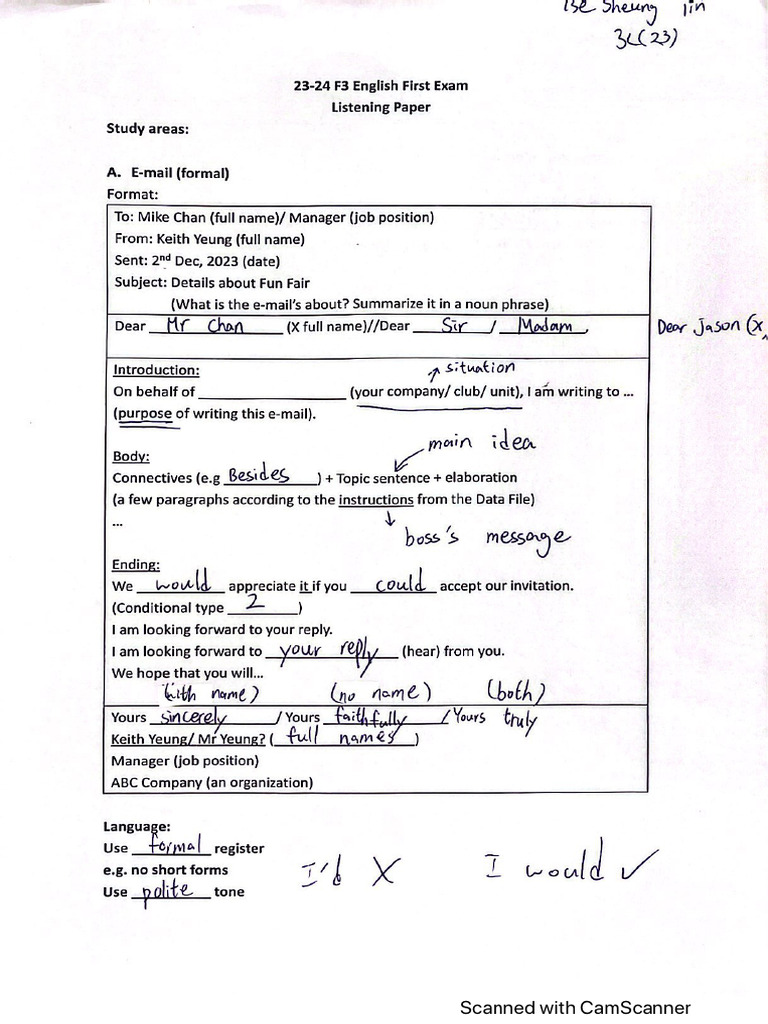 Sheung lin
3L(23)
23-24 F3 English First Exam
Listening Paper
Study areas:
A. E-mail (formal)
Format:
To: Mike Chan (full name)/ Manager (job position)
From: Keith Yeung (full name)
Sent: 2nd Dec, 2023 (date)
Subject: Details about Fun Fair
(What is the e-mail's about? Summarize it in a noun phrase)
Dear Mr Chan (X full name)//Dear Sir / Madam, Dear Jason (X
situation
Introduction:
On behalf of ____________ (your company/ club/ unit), I am writing to ...
(purpose of writing this e-mail).
main idea
Body:
Connectives (e.g Besides ) + Topic sentence + elaboration
(a few paragraphs according to the instructions from the Data File)
...
boss's message
Ending:
We would appreciate it if you could accept our invitation.
(Conditional type 2 )
I am looking forward to your reply.
I am looking forward to your reply (hear) from you.
We hope that you will...
(with name) (no name) (both)
Yours sincerely / Yours faithfully / Yours truly
Keith Yeung/ Mr Yeung? ( full names )
Manager (job position)
ABC Company (an organization)
Language:
Use formal register
e.g. no short forms I'd X I would ✓
Use polite tone
Scanned with CamScanner